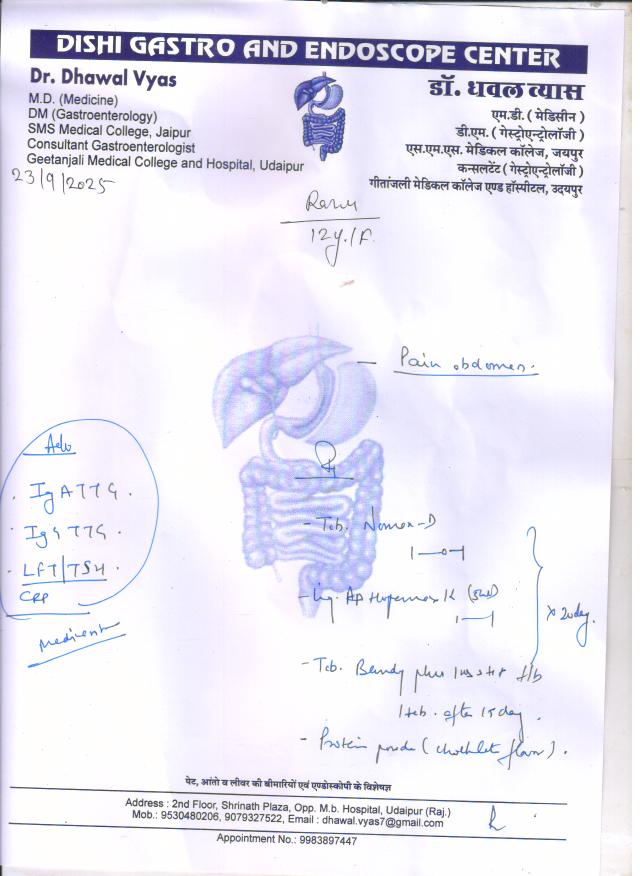 DISHI GASTRO AND ENDOSCOPE CENTER
Dr. Dhawal Vyas
M.D. (Medicine)
DM (Gastroenterology)
SMS Medical College, Jaipur
Consultant Gastroenterologist
Geetanjali Medical College and Hospital, Udaipur
डॉ. धवल व्यास
एम.डी. ( मेडिसीन )
डी.एम. ( गेस्ट्रोएन्ट्रोलॉजी )
एस.एम.एस. मेडिकल कॉलेज, जयपुर
कन्सलटेंट ( गेस्ट्रोएन्ट्रोलॉजी )
गीतांजली मेडिकल कॉलेज एण्ड हॉस्पीटल, उदयपुर
23/9/2025
12y./F.
— Pain abdomen.
Adv
. IgA TTG.
. IgG TTG.
. LFT/TSH.
CRP
Rx
- Tab. -D
1—0—1
1—1
x 20 day.
- Tab. plus
1 tab. after 15 day.
- Protein powder ( flavor).
पेट, आंतो व लीवर की बीमारियों एवं एण्डोस्कोपी के विशेषज्ञ
Address : 2nd Floor, Shrinath Plaza, Opp. M.b. Hospital, Udaipur (Raj.)
Mob.: 9530480206, 9079327522, Email : dhawal.vyas7@gmail.com
Appointment No.: 9983897447